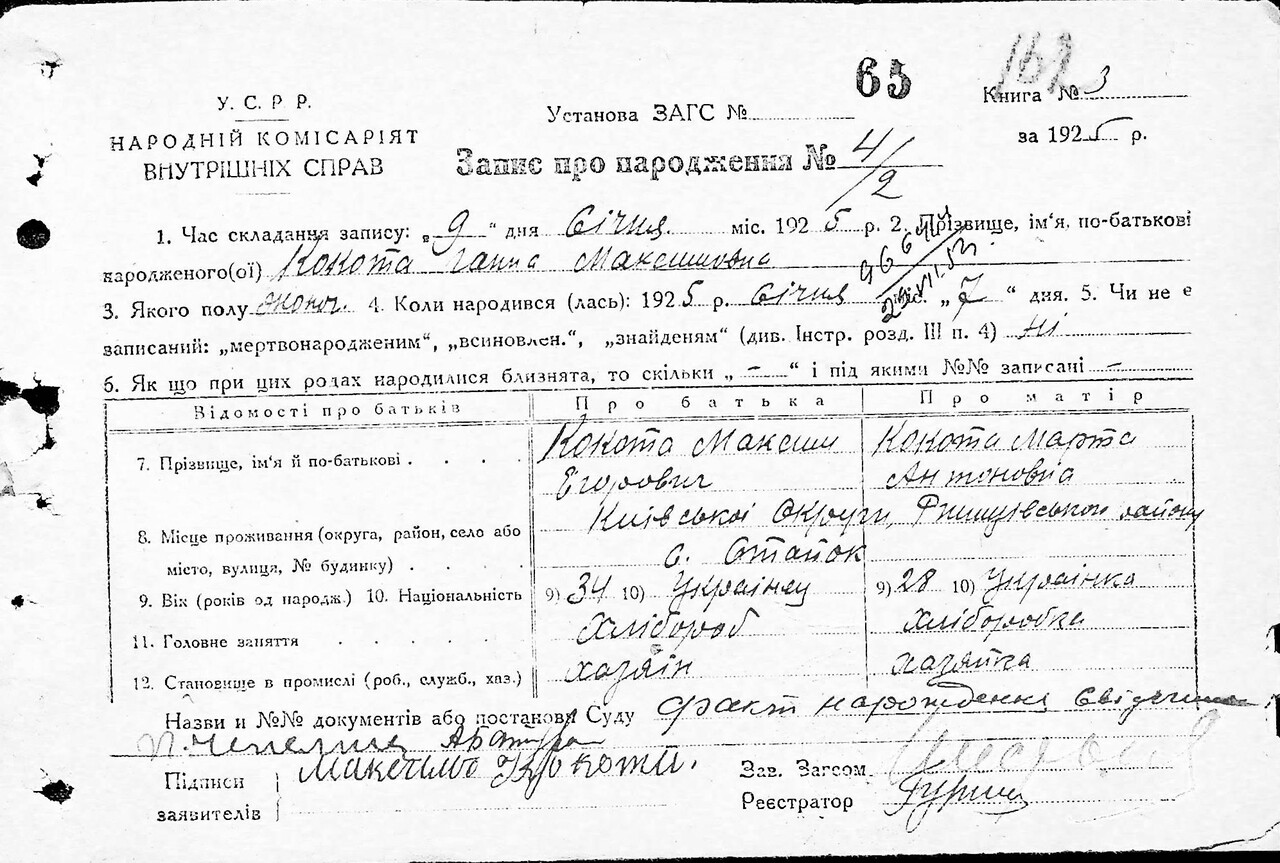 65
У. С. Р. Р.
НАРОДНІЙ КОМІСАРІЯТ
ВНУТРІШНІХ СПРАВ
Установа ЗАГС №
Книга № 3
за 1925 р.
Запис про народження № 4/2
1. Час складання запису: „9“ дня Січня міс. 1925 р. 2. Прізвище, ім‘я, по-батькові
народженого(ої) Кокота Ганна Максимовна
3. Якого полу жіноч. 4. Коли народився (лась): 1925 р. Січня міс. „7“ дня. 5. Чи не є
записаний: „мертвонародженим“, „всиновлен.“, „знайденям“ (див. Інстр. розд. III п. 4) ні
6. Як що при цих родах народилися близнята, то скільки „ – “ і під якими №№ записані –
Відомості про батьків Про батька Про матір
7. Прізвище, ім‘я й по-батькові . . . . Кокота Максим Егорович Кокота Марта Антоновна
8. Місце проживання (округа, район, село або
місто, вулиця, № будинку) . . . . Київської Округи, Ржищівського району
с. Стайок
9. Вік (років од народж.) 10. Національність 9) 34 10) Українец 9) 28 10) Українка
11. Головне заняття . . . . . Хлібороб Хліборобка
12. Становище в промислі (роб., служб., хаз.) хазяін хазяйка
Назви и №№ документів або постанови Суду факт нарождения
Підписи
заявителів
Максимъ Кокота.
Зав. Загсом
Реєстратор